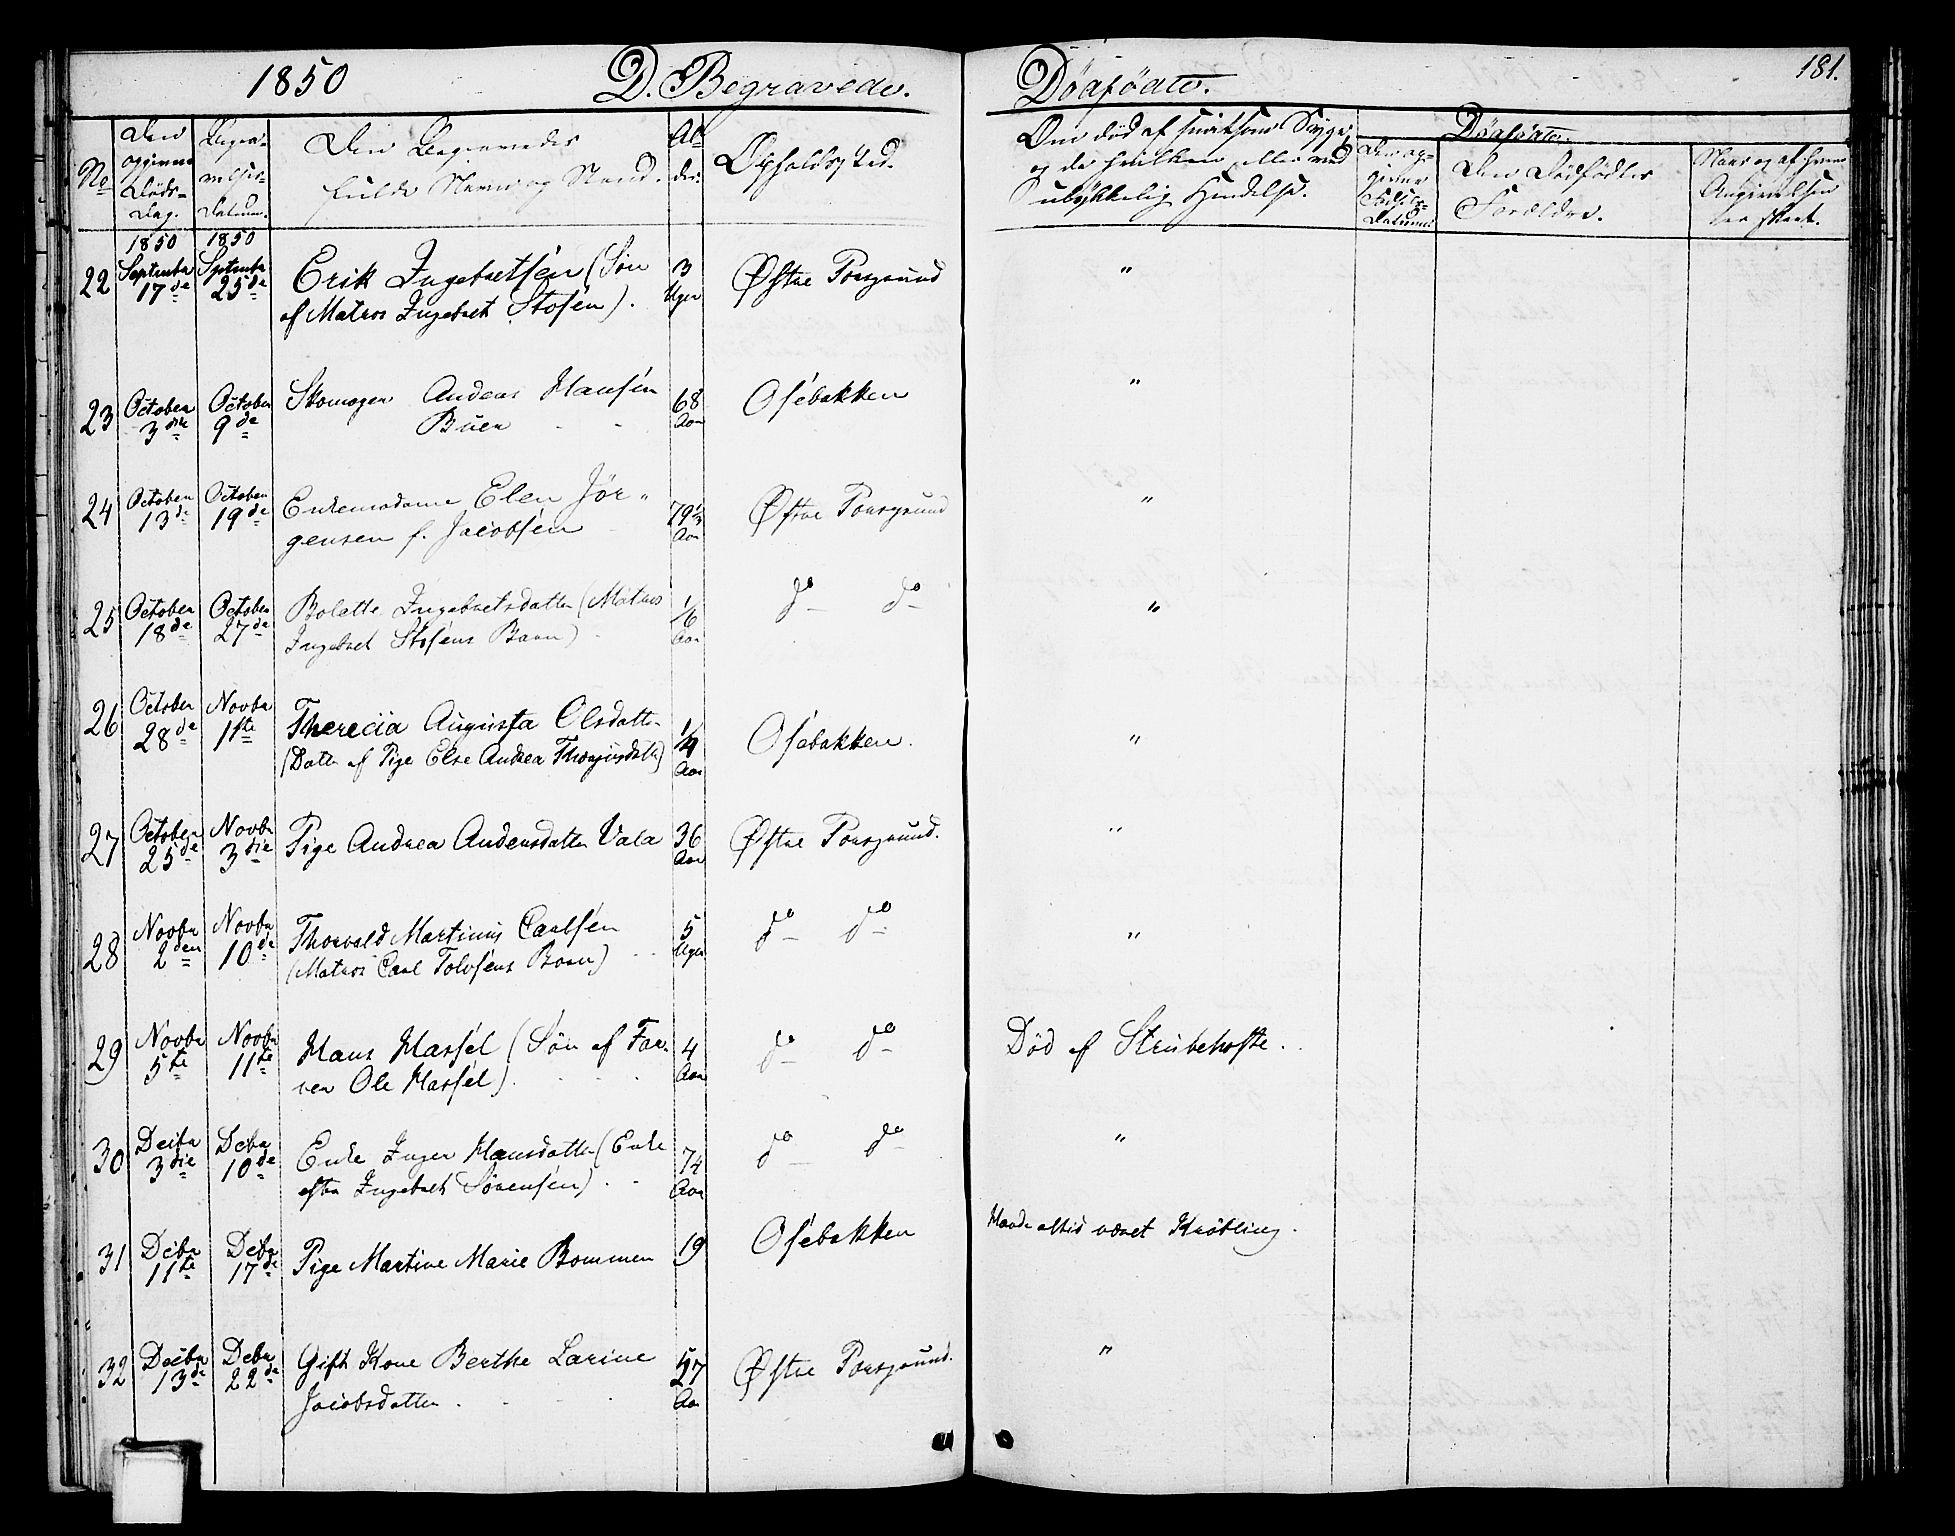 1850 D. Begravede. Dødfødte. 181.
No
Den opgivne Døds-Dag.
Begravelses-Datum.
Den Begravedes
fulde Navn og Stand.
Alder.
Opholdssted.
Om død af smitsom Syge,
og da hvilken, eller ved
ulykkelig Hendelse.
Dødfødte.
Den opgivne Fødsels-Datum.
Den Dødfødtes
Forældre.
Naar og af hvem
Angivelsen
er skeet.
1850 1850
22 September 17de September 25de Erik Ingebretsen (Søn 3 Uger Østre Porsgrund "
af Matros Ingebret Stosen).
23 October 3die October 9de Skomager Anders Hansen 68 Aar Osebakken "
Buer
24 October 13de October 19de Enkemadame Elen Jør" 79 Aar Østre Porsgrund "
gensen f. Jacobsen
25 October 18de October 27de Bolette Ingebretsdatter (Matros 1/6 Aar do do "
Ingebret Stosens Barn)
26 October 28de Novbr 1ste Therecia Augusta Olsdatter 1/4 Aar Osebakken. "
(Datter af Pige Else Andrea)
27 October 25de Novbr 3die Pige Andrea Andersdatter Vala 36 Aar Østre Porsgrund. "
28 Novbr 2den Novbr 10de Thorvald Martinus Carlsen 5 Uger do do "
(Matros Carl Tolvsens Barn)
29 Novbr 5te Novbr 11te Hans Hassel (Søn af Far- 4 Aar do do Død af Strubehoste.
ver Ole Hassel).
30 Decbr 3die Decbr 10de Enke Inger Hansdatter (Enke 74 Aar do do "
efter Ingebret Sørensen).
31 Decbr 11te Decbr 17de Pige Martine Marie Bommen 19 Osebakken Havde altid været Krøbling.
32 Decbr 13de Decbr 22de Gift Kone Berthe Larine 27 Aar Østre Porsgrund. "
Jacobsdatter.